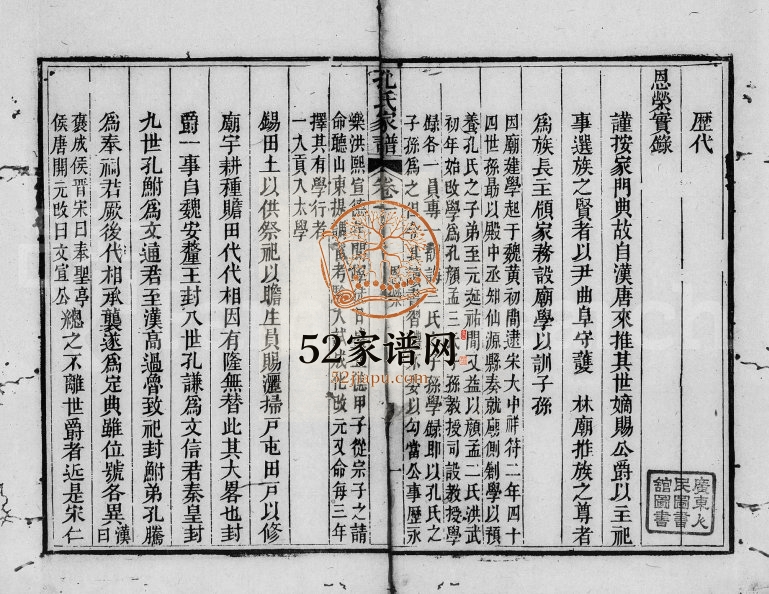 歷代
恩榮實錄
謹按家門典故自漢唐來推其世嫡賜公爵以主祀
事選族之賢者以尹曲阜守護 林廟推族之尊者
為族長主領家務設廟學以訓子孫
因廟建學起于魏黃初間逮宋大中祥符二年四十
四世孫勗以殿中丞知仙源縣奏就廟側創學以預
養孔氏之子弟至元延祐間又益以顏孟二氏洪武
初年始改學為孔顏孟三氏子孫教授司設教授學
錄各一員專一訓誨三氏子孫學錄即以孔氏之
子孫為之
以勾當公事歷永
樂洪熙宣德
甲子從宗子之請
命聽山東提
成化改元又命每三年
擇其有學行者
一人貢入太學
錫田土以供祭祀以贍生員賜灑掃戶屯田戶以修
廟宇耕種贍田代代相因有隆無替此其大畧也封
爵一事自魏安釐王封八世孔謙為文信君秦皇封
九世孔鮒為文通君至漢高過魯致祀封鮒弟孔騰
為奉祠君厥後代相承襲遂為定典雖位號各異漢曰
褒成侯晋宋曰奉聖亭
侯唐開元改曰文宣公總之不離世爵者近是宋仁
孔氏家譜 卷
恩榮
廣東人
民圖書
館圖書
52家谱网
52jiapu.com